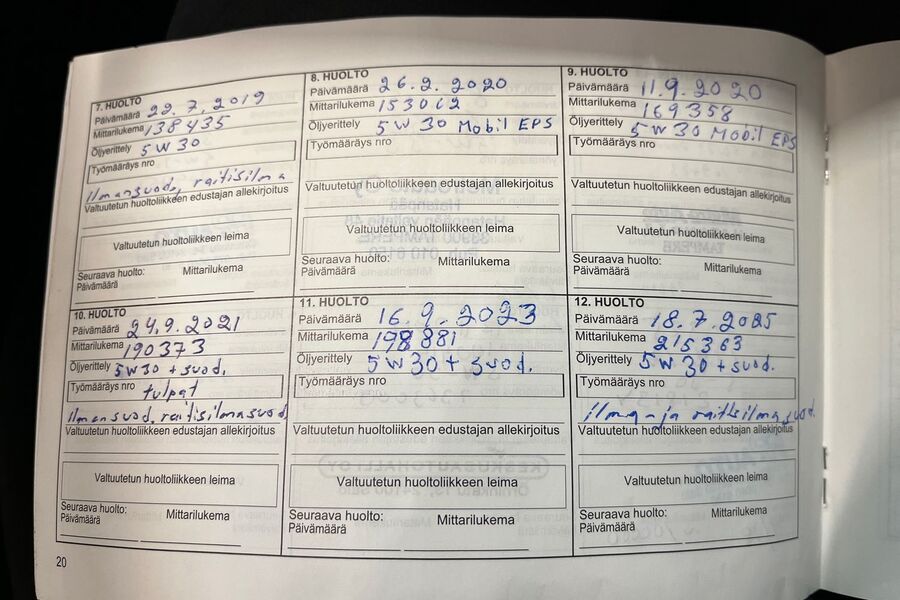 7. HUOLTO
Päivämäärä 22.7.2019
Mittarilukema 138435
Öljyerittely 5W30
Työmääräys nro
ilmansuod, raitisilma
Valtuutetun huoltoliikkeen edustajan allekirjoitus
Valtuutetun huoltoliikkeen leima
Seuraava huolto:
Päivämäärä
Mittarilukema
8. HUOLTO
Päivämäärä 26.2.2020
Mittarilukema 153062
Öljyerittely 5W30 Mobil EPS
Työmääräys nro
Valtuutetun huoltoliikkeen edustajan allekirjoitus
Valtuutetun huoltoliikkeen leima
Seuraava huolto:
Päivämäärä
Mittarilukema
9. HUOLTO
Päivämäärä 11.9.2020
Mittarilukema 169358
Öljyerittely 5W30 Mobil EPS
Työmääräys nro
Valtuutetun huoltoliikkeen edustajan allekirjoitus
Valtuutetun huoltoliikkeen leima
Seuraava huolto:
Päivämäärä
Mittarilukema
10. HUOLTO
Päivämäärä 24.9.2021
Mittarilukema 190373
Öljyerittely 5W30 + suod.
Työmääräys nro tulpat
ilmansuod, raitisilmasuod
Valtuutetun huoltoliikkeen edustajan allekirjoitus
Valtuutetun huoltoliikkeen leima
Seuraava huolto:
Päivämäärä
Mittarilukema
11. HUOLTO
Päivämäärä 16.9.2023
Mittarilukema 198881
Öljyerittely 5W30 + suod.
Työmääräys nro
Valtuutetun huoltoliikkeen edustajan allekirjoitus
Valtuutetun huoltoliikkeen leima
Seuraava huolto:
Päivämäärä
Mittarilukema
12. HUOLTO
Päivämäärä 18.7.2025
Mittarilukema 215363
Öljyerittely 5W30 + suod.
Työmääräys nro
ilma- ja raitisilmasuod.
Valtuutetun huoltoliikkeen edustajan allekirjoitus
Valtuutetun huoltoliikkeen leima
Seuraava huolto:
Päivämäärä
Mittarilukema
20